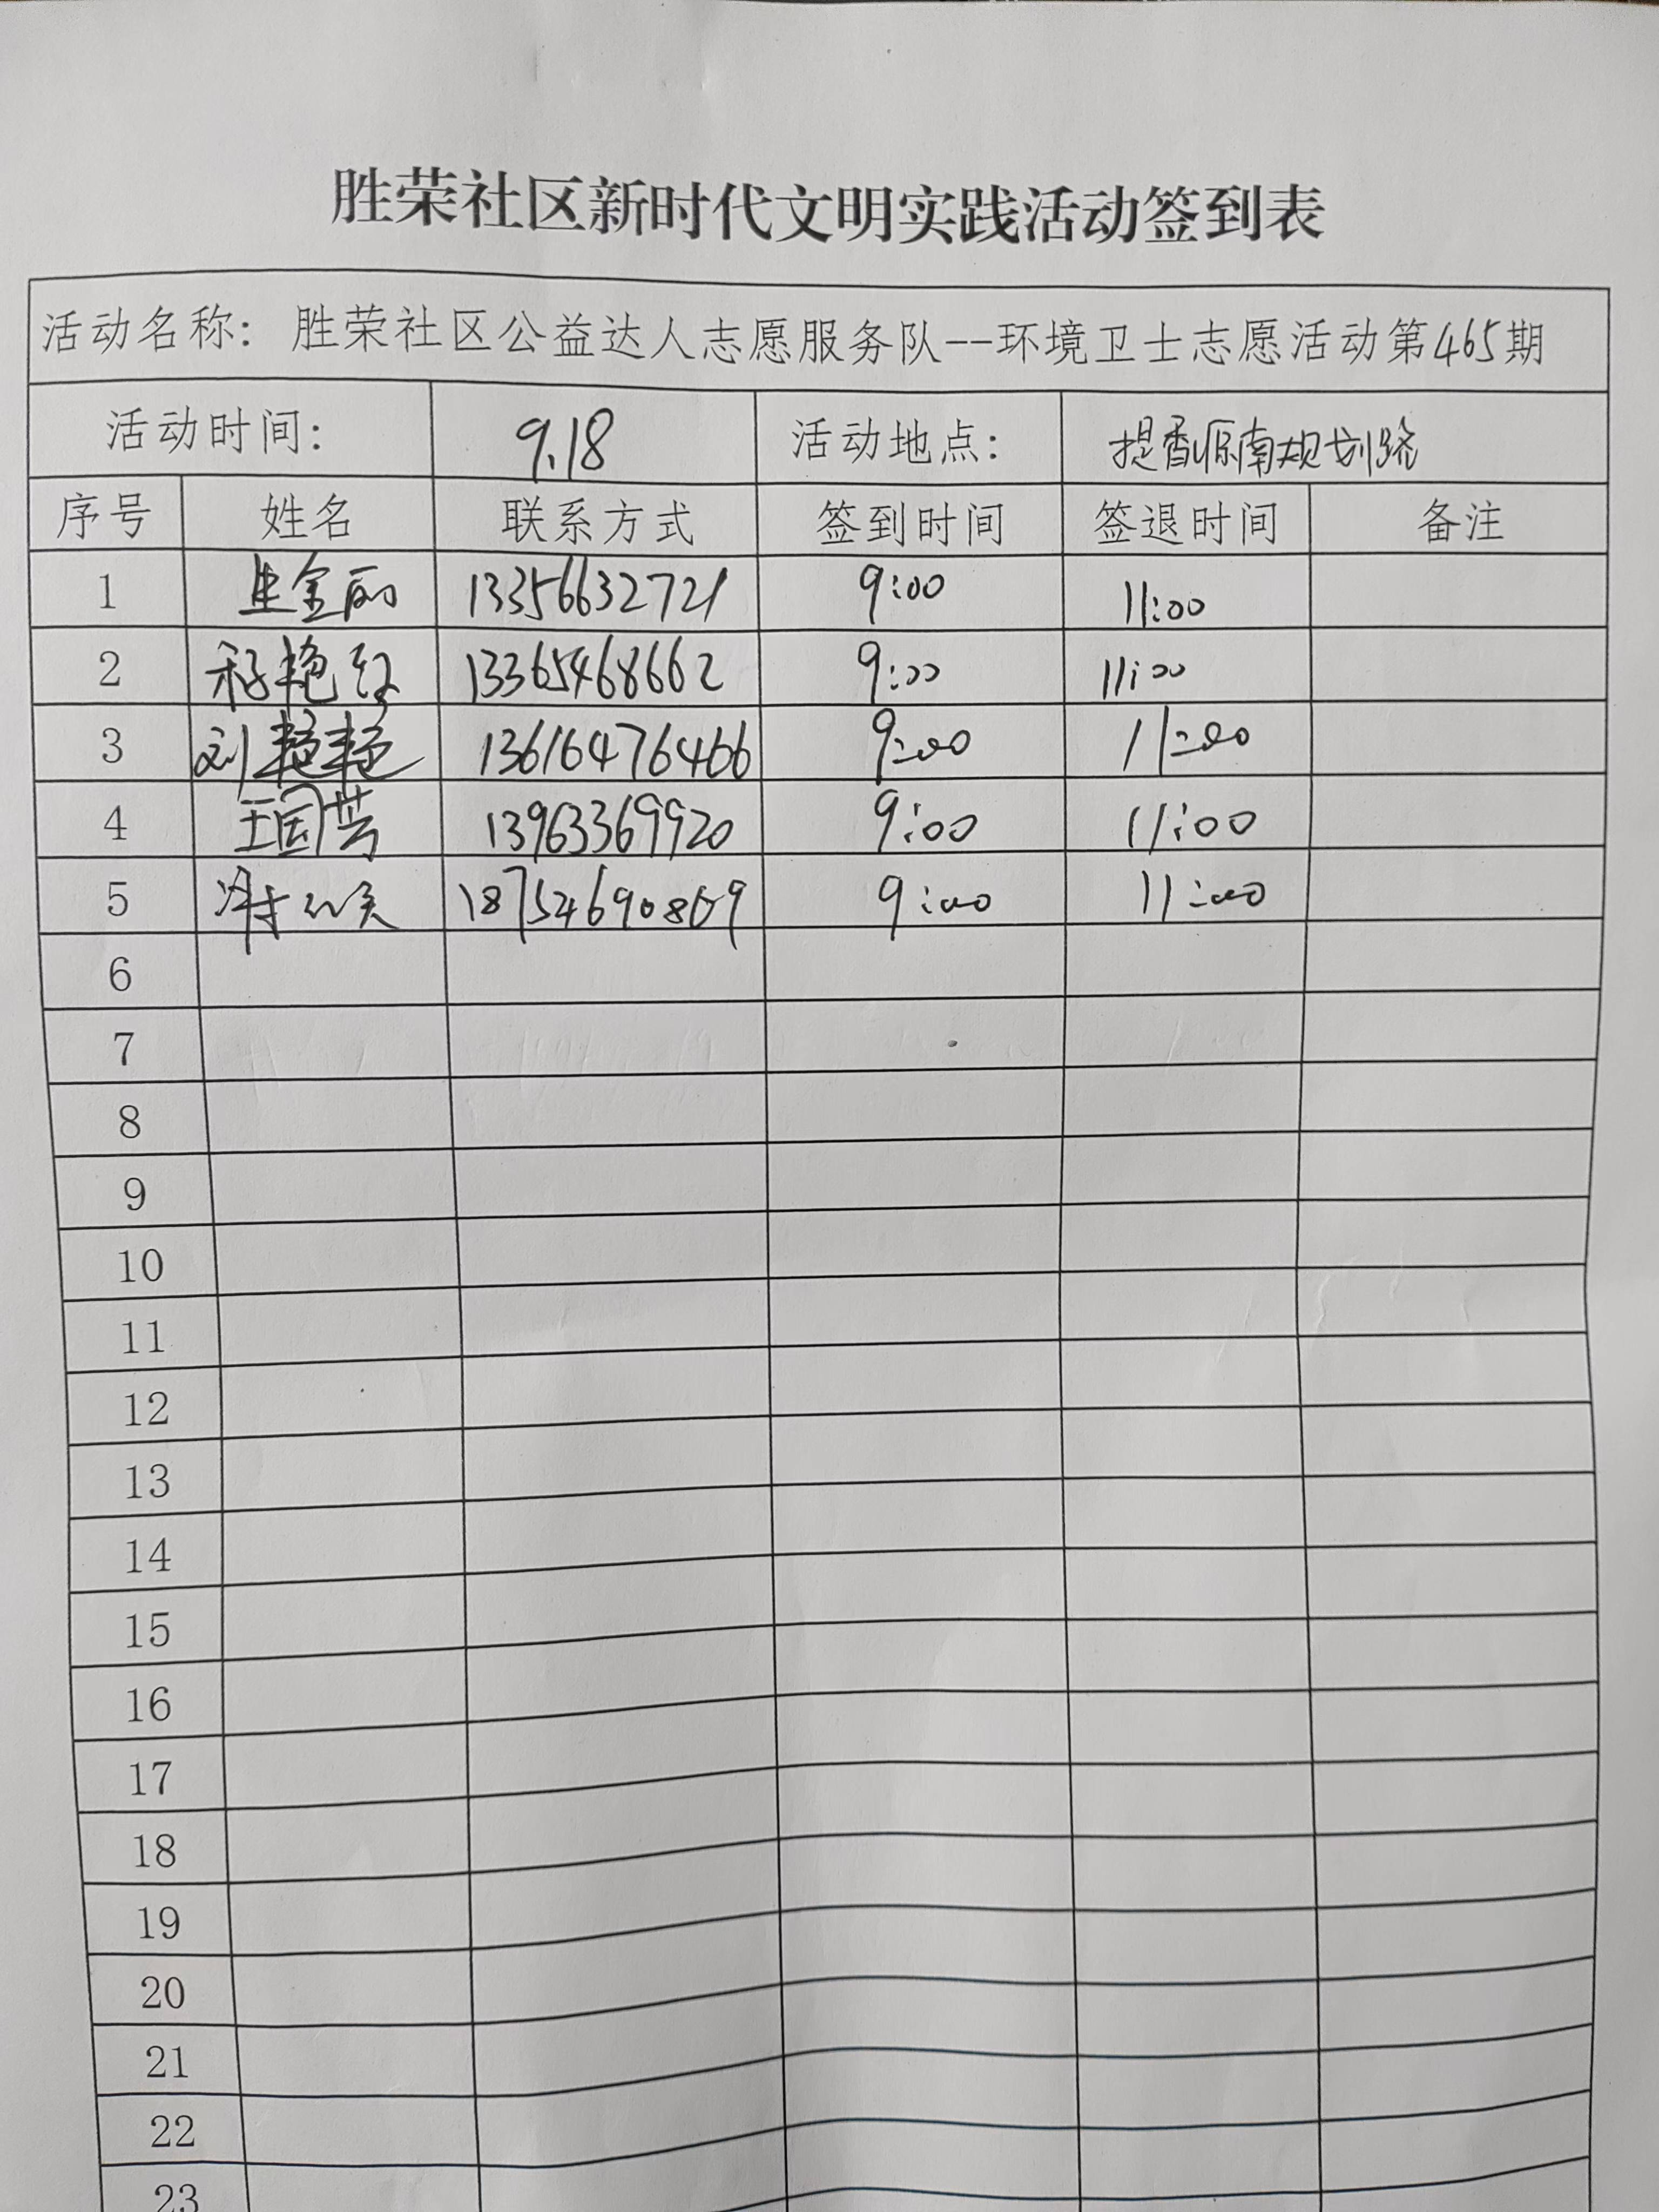 胜荣社区新时代文明实践活动签到表
活动名称: 胜荣社区公益达人志愿服务队--环境卫士志愿活动第465期
活动时间: 9.18 活动地点: 提香源南规划路
序号 姓名 联系方式 签到时间 签退时间 备注
1 金丽 13356632721 9:00 11:00
2 艳红 13365468662 9:00 11:00
3 刘艳艳 13616476466 9:00 11:00
4 王国芸 13963369920 9:00 11:00
5 18754690869 9:00 11:00
6
7
8
9
10
11
12
13
14
15
16
17
18
19
20
21
22
23